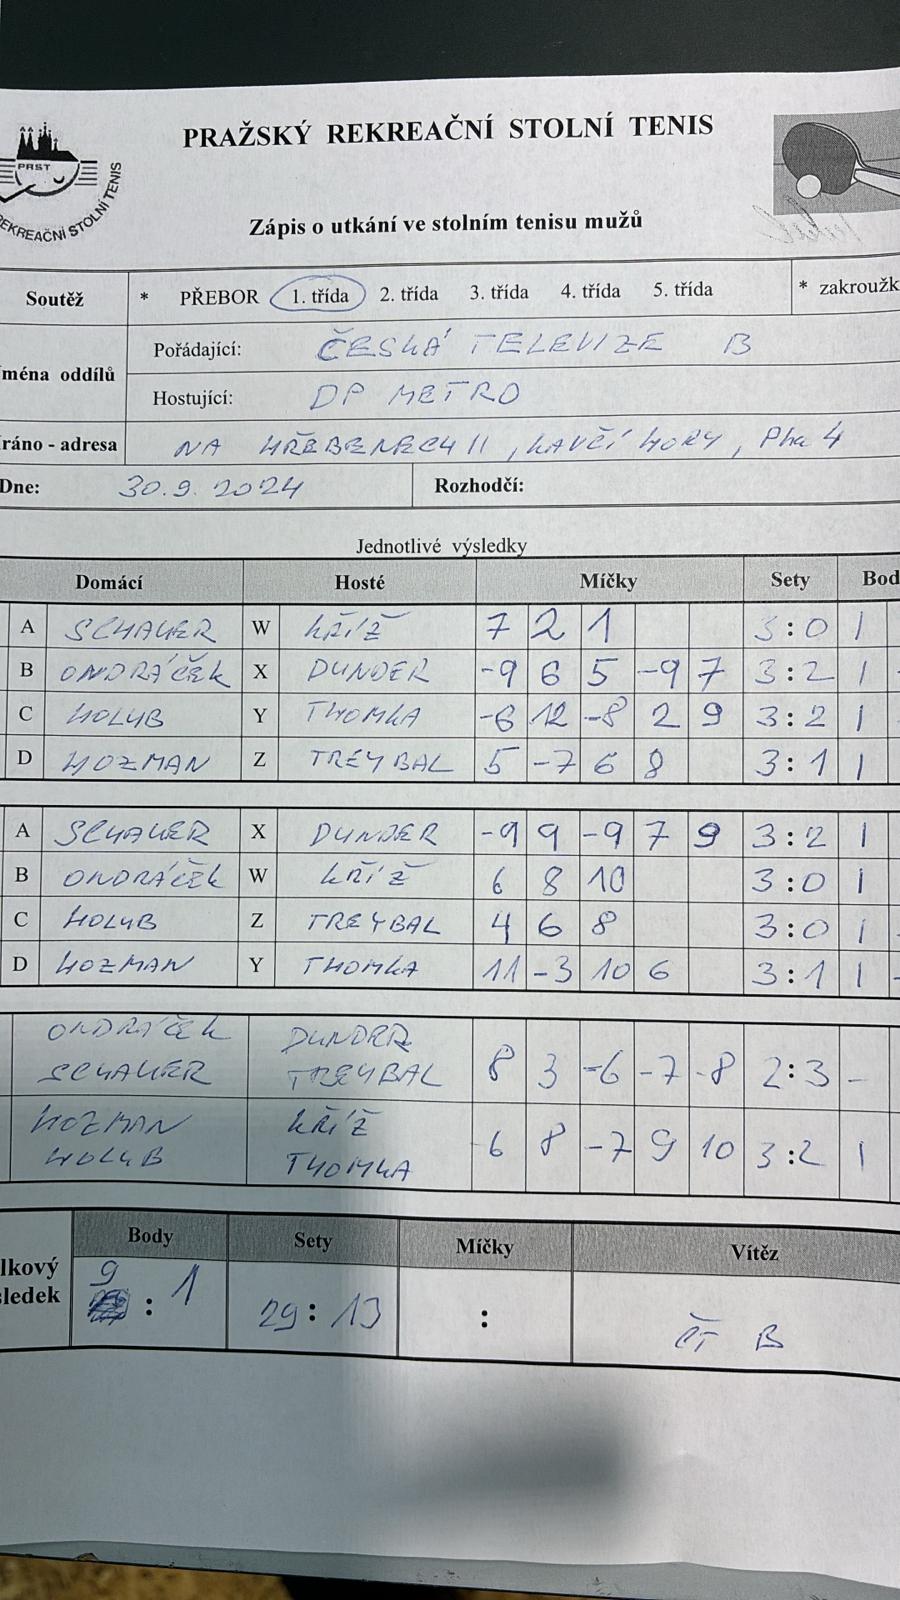 PRAŽSKÝ REKREAČNÍ STOLNÍ TENIS
PRST
REKREAČNÍ STOLNÍ TENIS
Zápis o utkání ve stolním tenisu mužů
Soutěž * PŘEBOR 1. třída 2. třída 3. třída 4. třída 5. třída * zakroužk
ména oddílů
Pořádající: ČESKÁ TELEVIZE B
Hostující: DP METRO
ráno - adresa NA HŘEBENECH II, KAVČÍ HORY, Pha 4
Dne: 30.9. 2024 Rozhodčí:
Jednotlivé výsledky
Domácí Hosté Míčky Sety Bod
A SCHAUER W KŘÍŽ 7 2 1 3:0 1
B ONDRÁČEK X DUNDER -9 6 5 -9 7 3:2 1
C HOLUB Y THOMKA -6 12 -8 2 9 3:2 1
D HOZMAN Z TREYBAL 5 -7 6 8 3:1 1
A SCHAUER X DUNDER -9 9 -9 7 9 3:2 1
B ONDRÁČEK W KŘÍŽ 6 8 10 3:0 1
C HOLUB Z TREYBAL 4 6 8 3:0 1
D HOZMAN Y THOMKA 11 -3 10 6 3:1 1
ONDRÁČEK DUNDER
SCHAUER TREYBAL 8 3 -6 -7 -8 2:3 -
HOZMAN KŘÍŽ
HOLUB THOMKA -6 8 -7 9 10 3:2 1
Body Sety Míčky Vítěz
lkový
sledek 9 : 1 29:13 : ČT B